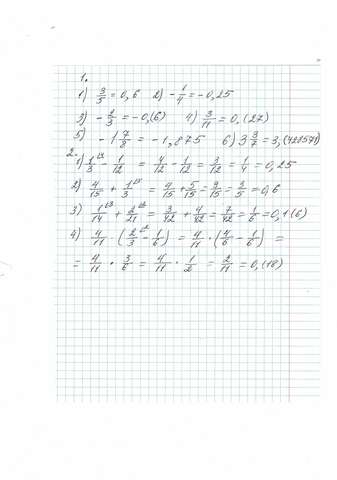 1.
1) 3/5 = 0,6 2) -1/4 = -0,25
3) -2/3 = -0,(6) 4) 3/11 = 0,(27)
5) -1 7/8 = -1,875 6) 3 3/7 = 3,(428571)
2.
1) 1/3 \4 - 1/12 = 4/12 - 1/12 = 3/12 = 1/4 = 0,25
2) 4/15 + 1/3 \5 = 4/15 + 5/15 = 9/15 = 3/5 = 0,6
3) 1/14 \3 + 2/21 \2 = 3/42 + 4/42 = 7/42 = 1/6 = 0,1(6)
4) 4/11 · (2/3 \2 - 1/6) = 4/11 · (4/6 - 1/6) =
= 4/11 · 3/6 = 4/11 · 1/2 = 2/11 = 0,(18)